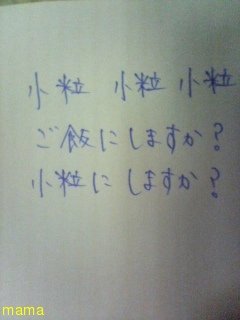 小粒 小粒 小粒
ご飯にしますか?
小粒にしますか?
mama